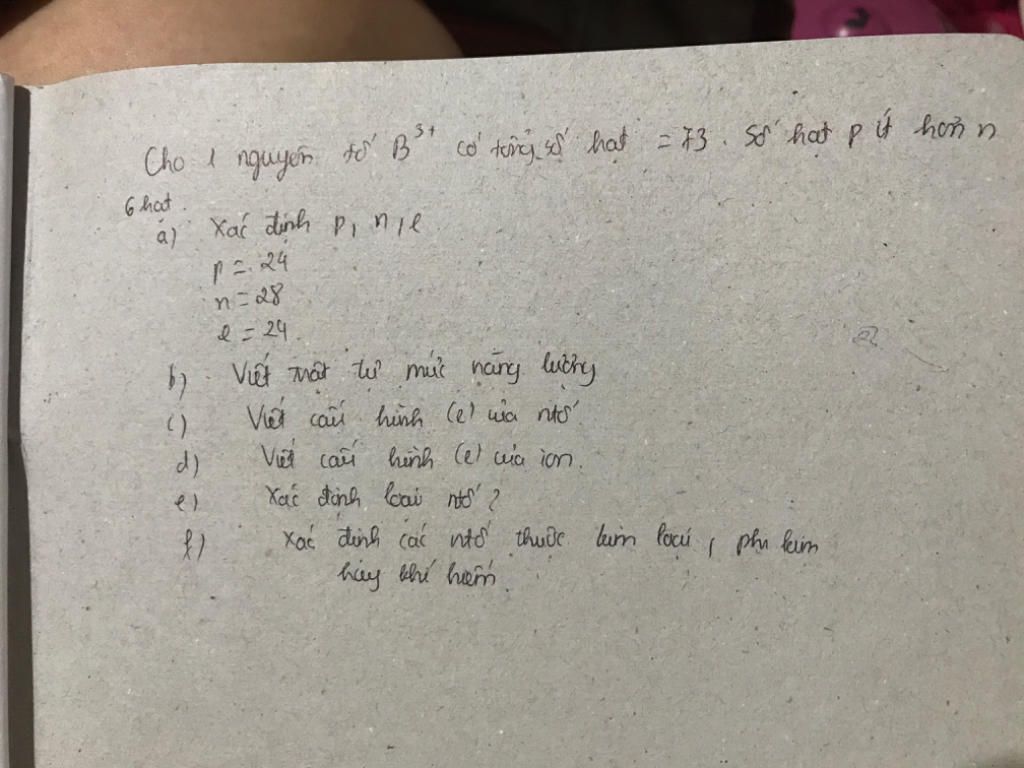 Cho 1 nguyên tố B³⁺ có tổng số hạt = 73. Số hạt p ít hơn n
6 hạt.
a) Xác định p, n, e
p = 24
n = 28
e = 24.
b) Viết trật tự mức năng lượng
c) Viết cấu hình (e) của ntố
d) Viết cấu hình (e) của ion.
e) Xác định loại ntố?
f) Xác định các ntố thuộc kim loại, phi kim
hay khí hiếm.